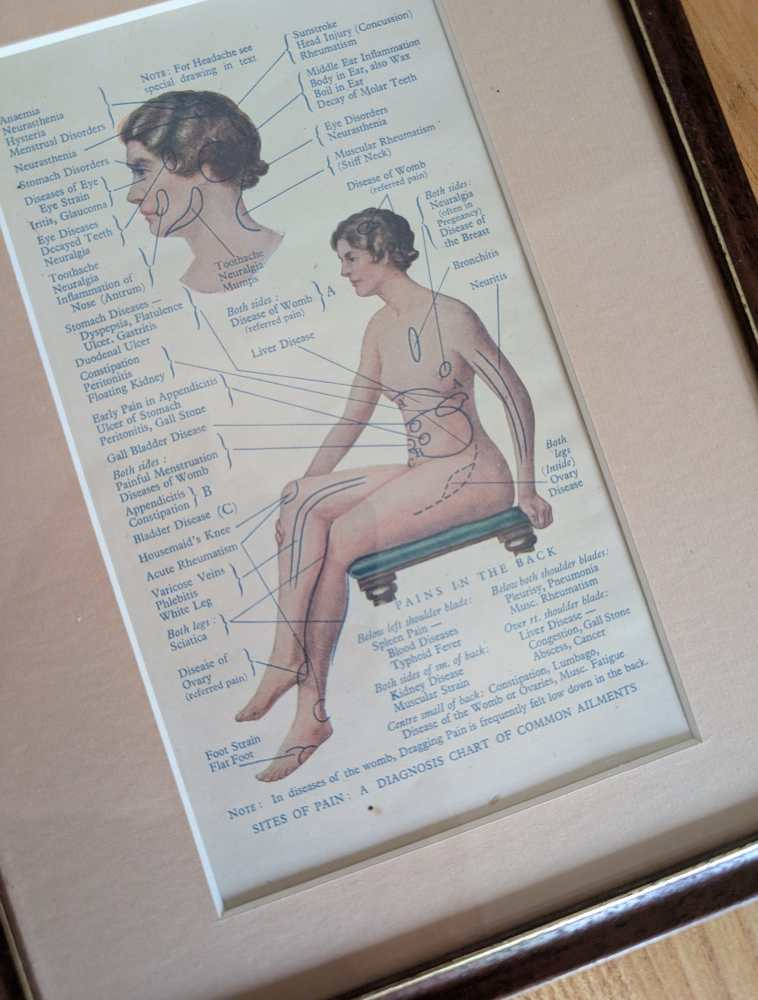 NOTE: For Headache see
special drawing in text
Sunstroke
Head Injury (Concussion)
Rheumatism
Middle Ear Inflammation
Body in Ear, also Wax
Boil in Ear
Decay of Molar Teeth
Eye Disorders
Neurasthenia
Muscular Rheumatism
(Stiff Neck)
Anaemia
Neurasthenia
Hysteria
Menstrual Disorders
Neurasthenia
Stomach Disorders
Diseases of Eye
Eye Strain
Iritis, Glaucoma
Eye Diseases
Decayed Teeth
Neuralgia
Toothache
Neuralgia
Inflammation of
Nose (Antrum)
Toothache
Neuralgia
Mumps
Disease of Womb
(referred pain)
Both sides:
Neuralgia
(often in
Pregnancy)
Disease of
the Breast
Bronchitis
Neuritis
Both sides:
Disease of Womb
(referred pain)
A
Liver Disease
Stomach Diseases —
Dyspepsia, Flatulence
Ulcer, Gastritis
Duodenal Ulcer
Constipation
Peritonitis
Floating Kidney
Early Pain in Appendicitis
Ulcer of Stomach
Peritonitis, Gall Stone
Gall Bladder Disease
Both sides:
Painful Menstruation
Diseases of Womb
Appendicitis
Constipation
B
Bladder Disease (C)
Housemaid's Knee
Acute Rheumatism
Varicose Veins
Phlebitis
White Leg
Both legs:
Sciatica
Disease of
Ovary
(referred pain)
Foot Strain
Flat Foot
A
B
Both
legs
(Inside)
Ovary
Disease
PAINS IN THE BACK
Below left shoulder blade:
Spleen Pain —
Blood Diseases
Typhoid Fever
Both sides of sm. of back:
Kidney Disease
Muscular Strain
Below both shoulder blades:
Pleurisy, Pneumonia
Musc. Rheumatism
Over rt. shoulder blade:
Liver Disease —
Congestion, Gall Stone
Abscess, Cancer
Centre small of back: Constipation, Lumbago,
Disease of the Womb or Ovaries, Musc. Fatigue
NOTE: In diseases of the womb, Dragging Pain is frequently felt low down in the back.
SITES OF PAIN: A DIAGNOSIS CHART OF COMMON AILMENTS